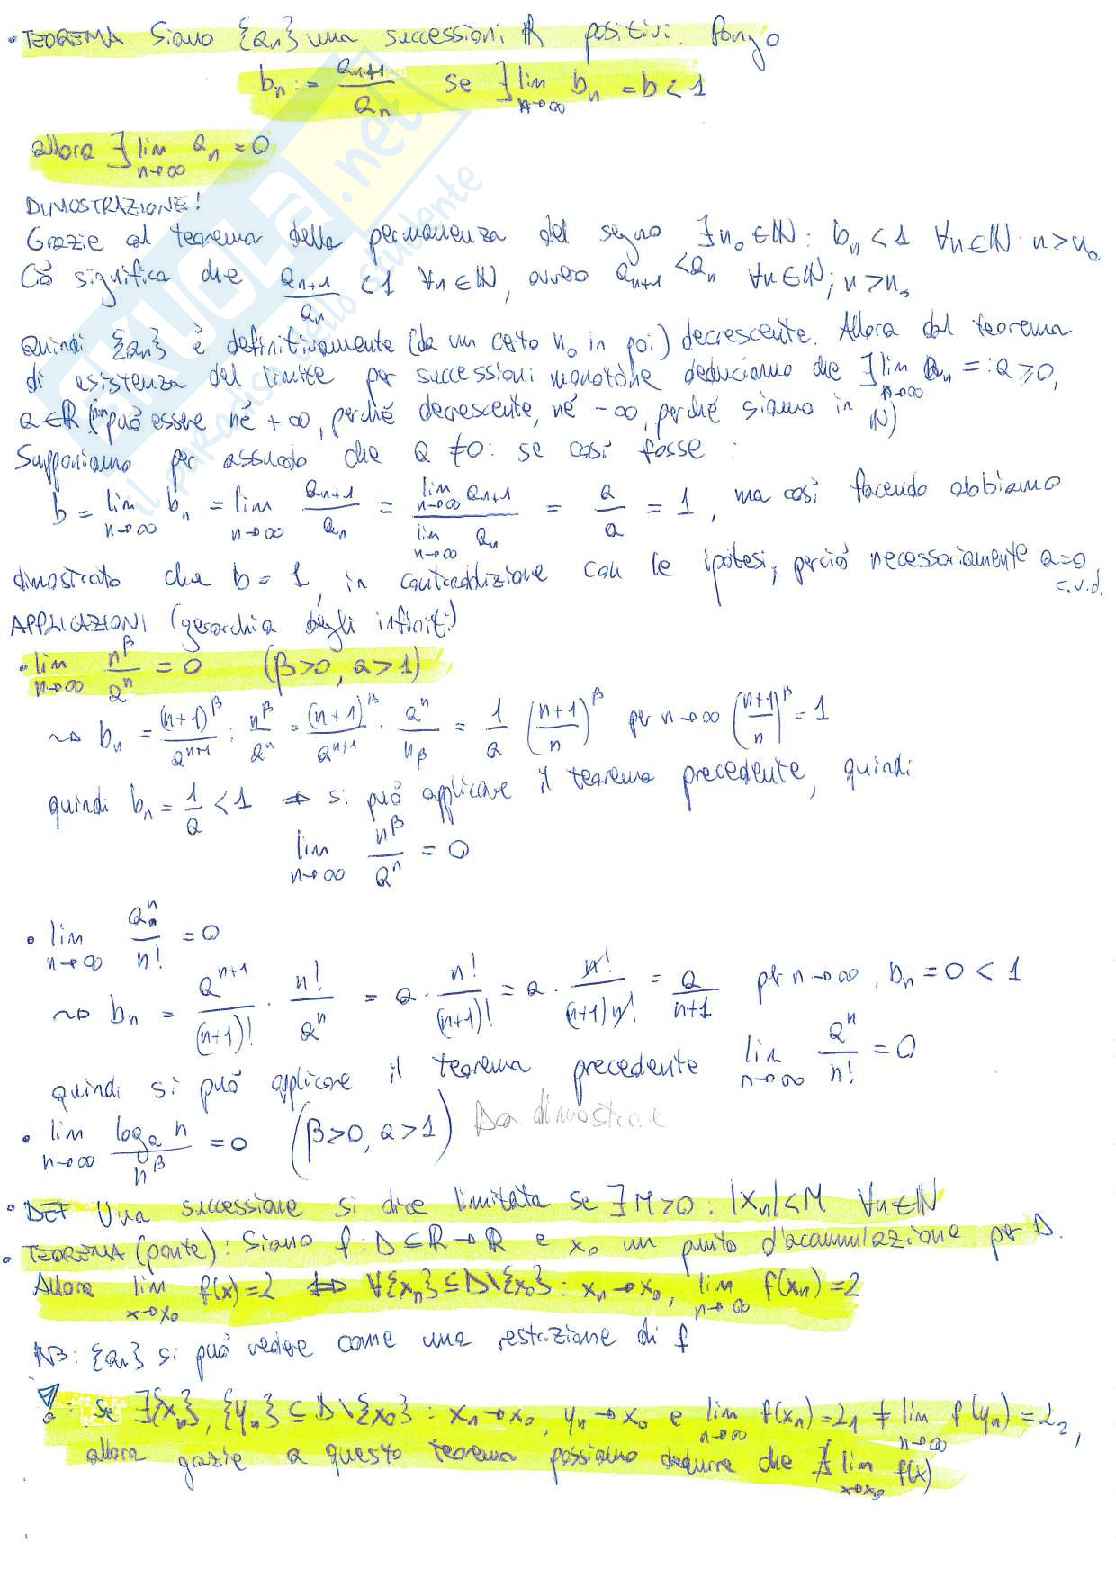 • TEOREMA Siano {an} una successioni ℝ positivi. Pongo
bn := an+1/an se ∃ lim n→∞ bn = b < 1
allora ∃ lim n→∞ an = 0
DIMOSTRAZIONE!
Grazie al teorema della permanenza del segno ∃ n₀ ∈ ℕ : bn < 1 ∀n ∈ ℕ : n > n₀
Ciò significa che an+1/an < 1 ∀n ∈ ℕ, ovvero an+1 < an ∀n ∈ ℕ; n > n₀
Quindi {an} è definitivamente (da un certo n₀ in poi) decrescente. Allora dal teorema
di esistenza del limite per successioni monotòne deduciamo che ∃ lim n→∞ an =: a ≥ 0,
a ∈ ℝ (non può essere né +∞, perché decrescente, né -∞, perché siamo in ℕ)
Supponiamo per assurdo che a ≠ 0: se così fosse :
b = lim n→∞ bn = lim n→∞ an+1/an = lim n→∞ an+1 / lim n→∞ an = a/a = 1, ma così facendo abbiamo
dimostrato che b = 1, in contraddizione con le ipotesi, perciò necessariamente a=0, c.v.d.
APPLICAZIONI (gerarchia degli infiniti)
• lim n→∞ n^β/a^n = 0 (β>0, a>1)
~> bn = (n+1)^β/a^(n+1) : n^β/a^n = (n+1)^β/a^(n+1) · a^n/nβ = 1/a ((n+1)/n)^β per n→∞ ((n+1)/n)^β = 1
quindi bn = 1/a < 1 ⇒ si può applicare il teorema precedente, quindi
lim n→∞ n^β/a^n = 0
• lim n→∞ a^n/n! = 0
~> bn = a^(n+1)/(n+1)! · n!/a^n = a · n!/(n+1)! = a · n!/(n+1)n! = a/(n+1) per n→∞, bn = 0 < 1
quindi si può applicare il teorema precedente lim n→∞ a^n/n! = 0
• lim n→∞ log_a n/n^β = 0 (β>0, a>1) Da dimostrare
• DEF Una successione si dice limitata se ∃ M>0 : |xn| ≤ M ∀n ∈ ℕ
• TEOREMA (ponte): Siano f: D ⊆ ℝ → ℝ e x₀ un punto d'accumulazione per D.
Allora lim x→x₀ f(x) = L ⇔ ∀{xn} ⊆ D\{x₀} : xn → x₀, lim n→∞ f(xn) = L
NB: {an} si può vedere come una restrizione di f
: Se ∃{xn}, {yn} ⊆ D\{x₀} : xn→x₀, yn→x₀ e lim n→∞ f(xn) = L₁ ≠ lim n→∞ f(yn) = L₂,
allora grazie a questo teorema possiamo dedurre che ∄ lim x→x₀ f(x)
SKUOLA.net
il paradiso dello studente